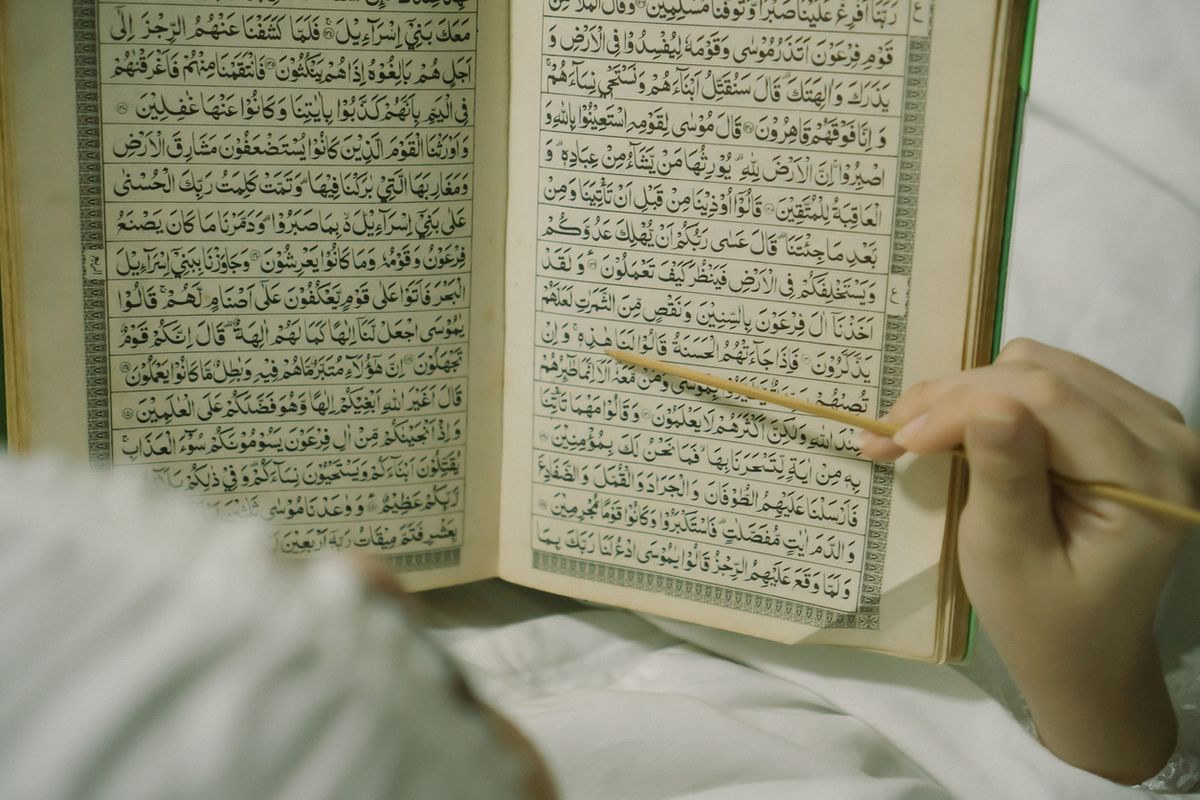 رَبَّنَا اَفْرِغْ عَلَيْنَا صَبْرًا وَّتَوَفَّنَا مُسْلِمِيْنَ ۝ وَقَالَ الْمَلَاُ مِنْ
قَوْمِ فِرْعَوْنَ اَتَذَرُ مُوْسٰى وَقَوْمَهٗ لِيُفْسِدُوْا فِى الْاَرْضِ وَ
يَذَرَكَ وَاٰلِهَتَكَ ۗ قَالَ سَنُقَتِّلُ اَبْنَآءَهُمْ وَنَسْتَحْيٖ نِسَآءَهُمْ ۚ
وَ اِنَّا فَوْقَهُمْ قَاهِرُوْنَ ۝ قَالَ مُوْسٰى لِقَوْمِهِ اسْتَعِيْنُوْا بِاللّٰهِ وَ
اصْبِرُوْا ۚ اِنَّ الْاَرْضَ لِلّٰهِ ۙ يُوْرِثُهَا مَنْ يَّشَآءُ مِنْ عِبَادِهٖ ۗ وَ
الْعَاقِبَةُ لِلْمُتَّقِيْنَ ۝ قَالُوْٓا اُوْذِيْنَا مِنْ قَبْلِ اَنْ تَاْتِيَنَا وَمِنْ
بَعْدِ مَا جِئْتَنَا ۗ قَالَ عَسٰى رَبُّكُمْ اَنْ يُّهْلِكَ عَدُوَّكُمْ
وَيَسْتَخْلِفَكُمْ فِى الْاَرْضِ فَيَنْظُرَ كَيْفَ تَعْمَلُوْنَ ۝ وَلَقَدْ
اَخَذْنَآ اٰلَ فِرْعَوْنَ بِالسِّنِيْنَ وَنَقْصٍ مِّنَ الثَّمَرٰتِ لَعَلَّهُمْ
يَذَّكَّرُوْنَ ۝ فَاِذَا جَآءَتْهُمُ الْحَسَنَةُ قَالُوْا لَنَا هٰذِهٖ ۚ وَاِنْ
تُصِبْهُمْ بِمُوْسٰى وَمَنْ مَّعَهٗ ۗ اَلَآ اِنَّمَا طٰٓئِرُهُمْ
عِنْدَ اللّٰهِ وَلٰكِنَّ اَكْثَرَهُمْ لَا يَعْلَمُوْنَ ۝ وَقَالُوْا مَهْمَا تَاْتِنَا
بِهٖ مِنْ اٰيَةٍ لِّتَسْحَرَنَا بِهَا ۙ فَمَا نَحْنُ لَكَ بِمُؤْمِنِيْنَ ۝
فَاَرْسَلْنَا عَلَيْهِمُ الطُّوْفَانَ وَالْجَرَادَ وَالْقُمَّلَ وَالضَّفَادِعَ
وَالدَّمَ اٰيٰتٍ مُّفَصَّلٰتٍ ۗ فَاسْتَكْبَرُوْا وَكَانُوْا قَوْمًا مُّجْرِمِيْنَ ۝
وَلَمَّا وَقَعَ عَلَيْهِمُ الرِّجْزُ قَالُوْا يٰمُوْسَى ادْعُ لَنَا رَبَّكَ بِمَا
ع
ع
مَعَكَ بَنِيْٓ اِسْرَآءِيْلَ ۝ فَلَمَّا كَشَفْنَا عَنْهُمُ الرِّجْزَ اِلٰٓى
اَجَلٍ هُمْ بٰلِغُوْهُ اِذَا هُمْ يَنْكُثُوْنَ ۝ فَانْتَقَمْنَا مِنْهُمْ فَاَغْرَقْنٰهُمْ
فِى الْيَمِّ بِاَنَّهُمْ كَذَّبُوْا بِاٰيٰتِنَا وَكَانُوْا عَنْهَا غٰفِلِيْنَ ۝
وَاَوْرَثْنَا الْقَوْمَ الَّذِيْنَ كَانُوْا يُسْتَضْعَفُوْنَ مَشَارِقَ الْاَرْضِ
وَمَغَارِبَهَا الَّتِيْ بٰرَكْنَا فِيْهَا ۗ وَتَمَّتْ كَلِمَتُ رَبِّكَ الْحُسْنٰى
عَلٰى بَنِيْٓ اِسْرَآءِيْلَ ۙ بِمَا صَبَرُوْا ۗ وَدَمَّرْنَا مَا كَانَ يَصْنَعُ
فِرْعَوْنُ وَقَوْمُهٗ وَمَا كَانُوْا يَعْرِشُوْنَ ۝ وَجَاوَزْنَا بِبَنِيْٓ اِسْرَآءِيْلَ
الْبَحْرَ فَاَتَوْا عَلٰى قَوْمٍ يَّعْكُفُوْنَ عَلٰٓى اَصْنَامٍ لَّهُمْ ۚ قَالُوْا
يٰمُوْسَى اجْعَلْ لَّنَآ اِلٰهًا كَمَا لَهُمْ اٰلِهَةٌ ۗ قَالَ اِنَّكُمْ قَوْمٌ
تَجْهَلُوْنَ ۝ اِنَّ هٰٓؤُلَآءِ مُتَبَّرٌ مَّا هُمْ فِيْهِ وَبٰطِلٌ مَّا كَانُوْا يَعْمَلُوْنَ ۝
قَالَ اَغَيْرَ اللّٰهِ اَبْغِيْكُمْ اِلٰهًا وَّهُوَ فَضَّلَكُمْ عَلَى الْعٰلَمِيْنَ ۝
وَاِذْ اَنْجَيْنٰكُمْ مِّنْ اٰلِ فِرْعَوْنَ يَسُوْمُوْنَكُمْ سُوْٓءَ الْعَذَابِ ۚ
يُقَتِّلُوْنَ اَبْنَآءَكُمْ وَيَسْتَحْيُوْنَ نِسَآءَكُمْ ۗ وَفِيْ ذٰلِكُمْ
رَّبِّكُمْ عَظِيْمٌ ۝ وَوٰعَدْنَا مُوْسٰى ثَلٰثِيْنَ
بِعَشْرٍ فَتَمَّ مِيْقَاتُ رَبِّهٖٓ اَرْبَعِيْنَ